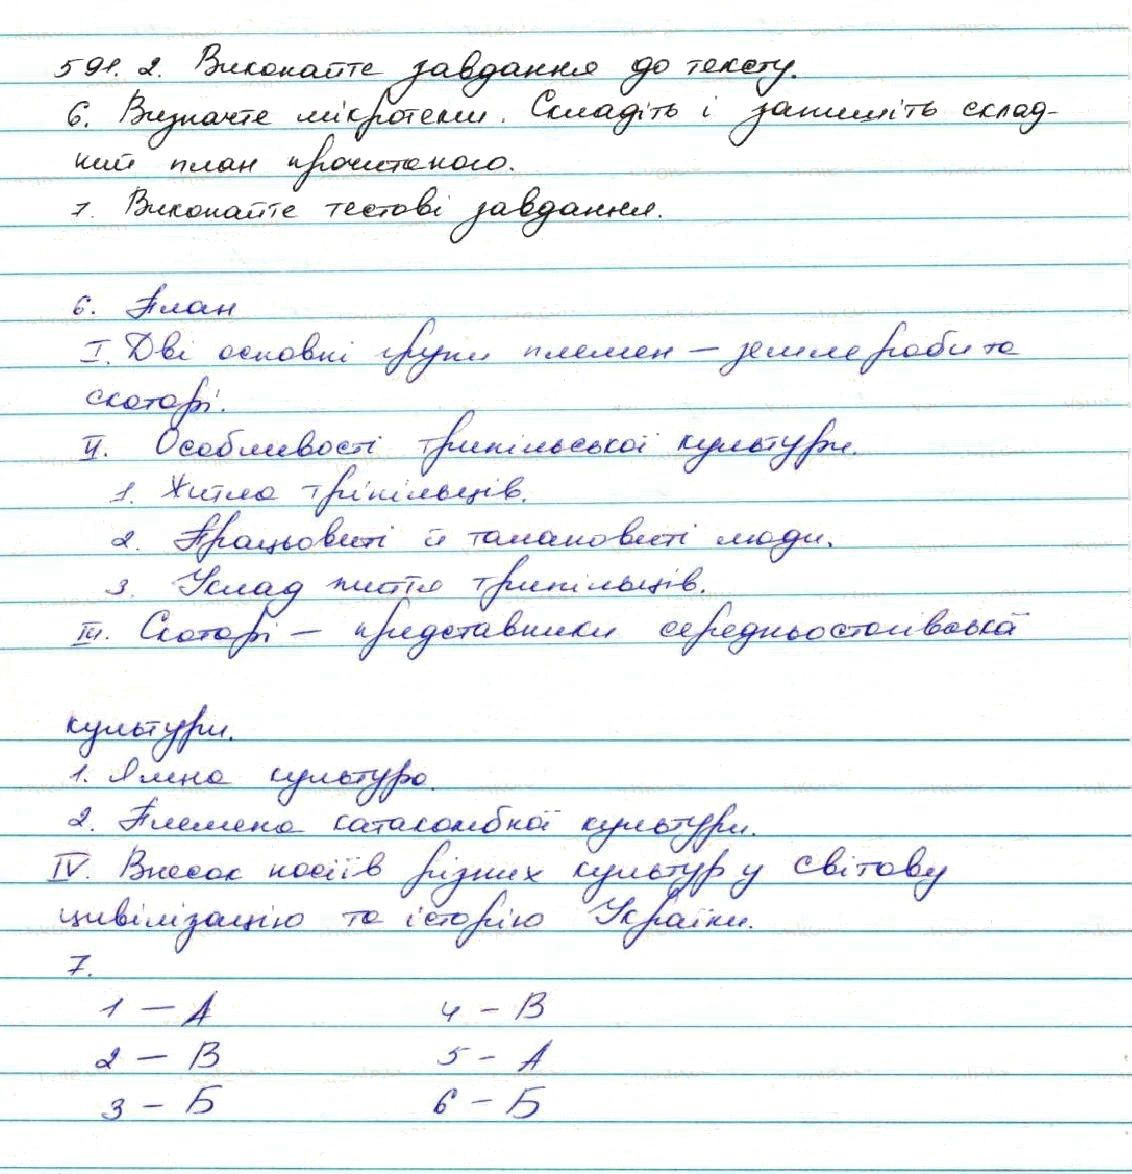 591. 2. Виконайте завдання до тексту.
6. Визначте мікротеми. Складіть і запишіть склад-
ний план прочитаного.
7. Виконайте тестові завдання.
6. План
I. Дві основні групи племен – землероби та
скотарі.
II. Особливості трипільської культури.
1. Житла трипільців.
2. Працьовиті й талановиті люди.
3. Уклад життя трипільців.
III. Скотарі – представники середньостогівської
культури.
1. Ямна культура.
2. Племена катакомбної культури.
IV. Внесок носіїв різних культур у світову
цивілізацію та історію України.
7.
1 – А 4 – В
2 – В 5 – А
3 – Б 6 – Б